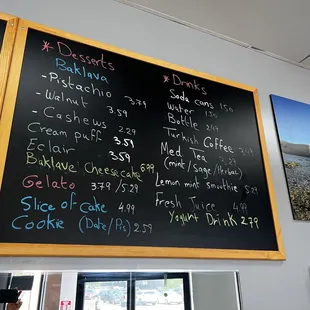 * Desserts
Baklava
- Pistachio 3.79
- Walnut 3.59
- Cashews 2.29
Cream puff 3.59
Eclair 3.59
Baklava Cheesecake 6.99
Gelato 3.79 / 5.29
Slice of Cake 4.99
Cookie (Date/Pis) 2.59
* Drinks
Soda cans 1.50
Water 1.50
Bottle 2.49
Turkish Coffee 3.49
Med Tea
(mint/sage/Herbal)
Lemon mint smoothie 5.29
Fresh Juice 4.99
Yogurt Drink 2.79